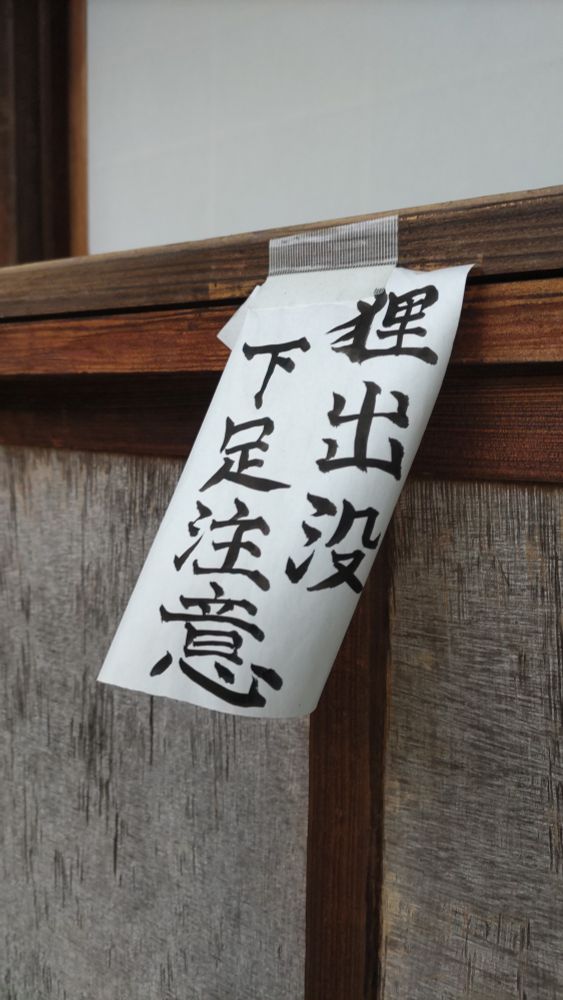 狸出没
下足注意